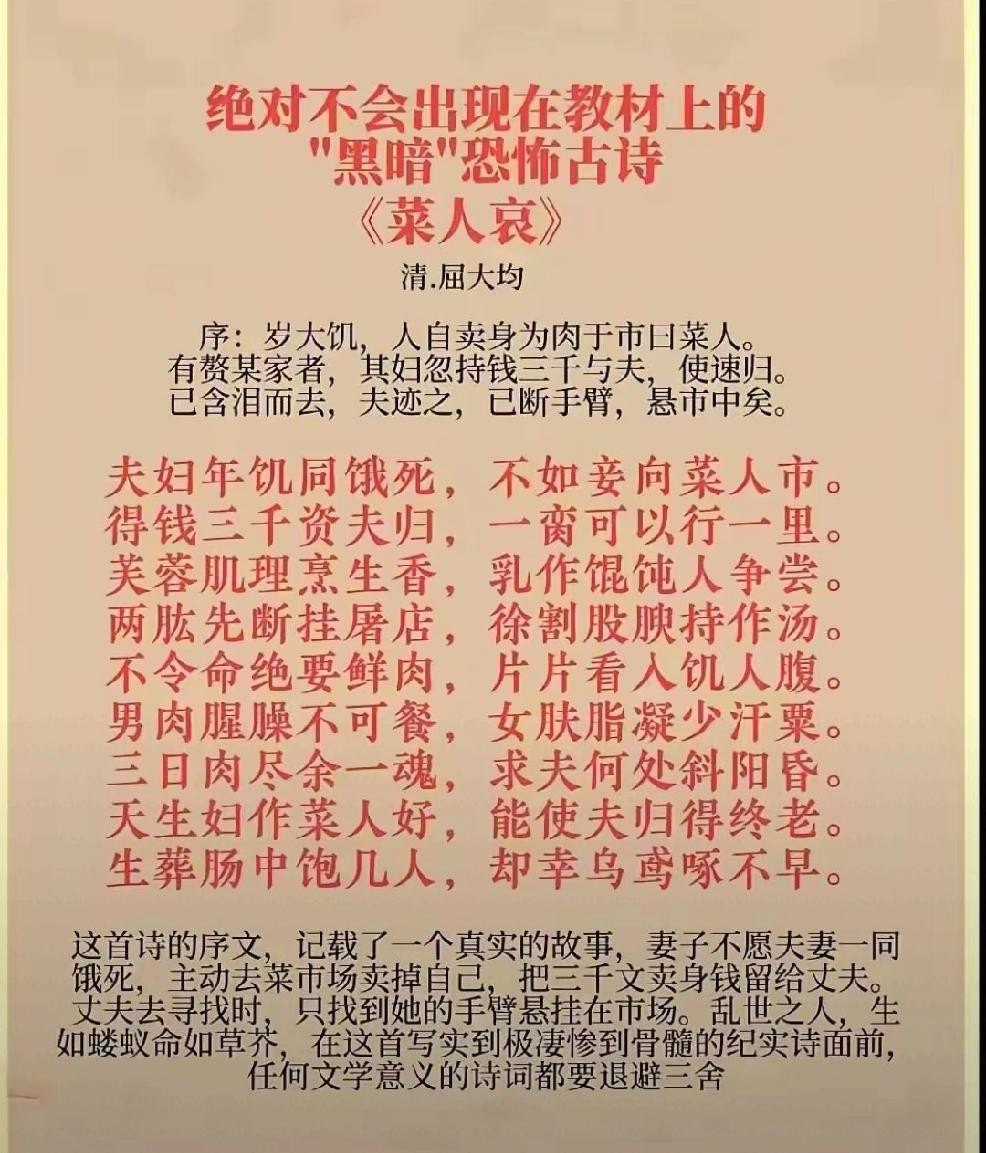 绝对不会出现在教材上的
"黑暗"恐怖古诗
《菜人哀》
清.屈大均
序：岁大饥，人自卖身为肉于市曰菜人。
有赘某家者，其妇忽持钱三千与夫，使速归。
已含泪而去，夫迹之，已断手臂，悬市中矣。
夫妇年饥同饿死，不如妾向菜人市。
得钱三千资夫归，一脔可以行一里。
芙蓉肌理烹生香，乳作馄饨人争尝。
两肱先断挂屠店，徐割股腴持作汤。
不令命绝要鲜肉，片片看入饥人腹。
男肉腥臊不可餐，女肤脂凝少汗粟。
三日肉尽余一魂，求夫何处斜阳昏。
天生妇作菜人好，能使夫归得终老。
生葬肠中饱几人，却幸乌鸢啄不早。
这首诗的序文，记载了一个真实的故事，妻子不愿夫妻一同
饿死，主动去菜市场卖掉自己，把三千文卖身钱留给丈夫。
丈夫去寻找时，只找到她的手臂悬挂在市场。乱世之人，生
如蝼蚁命如草芥，在这首写实到极凄惨到骨髓的纪实诗面前，
任何文学意义的诗词都要退避三舍